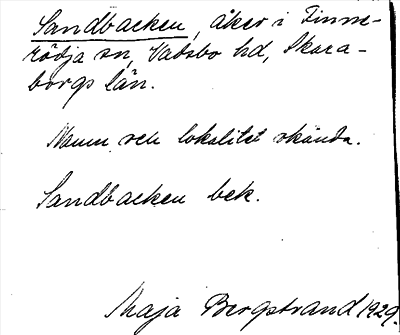 Sandbacken, åker i Finne-
rödja sn, Vadsbo hd, Skara-
borgs län.
Namn och lokalitet okända.
Sandbacken bek.
Maja Bergstrand 1929.